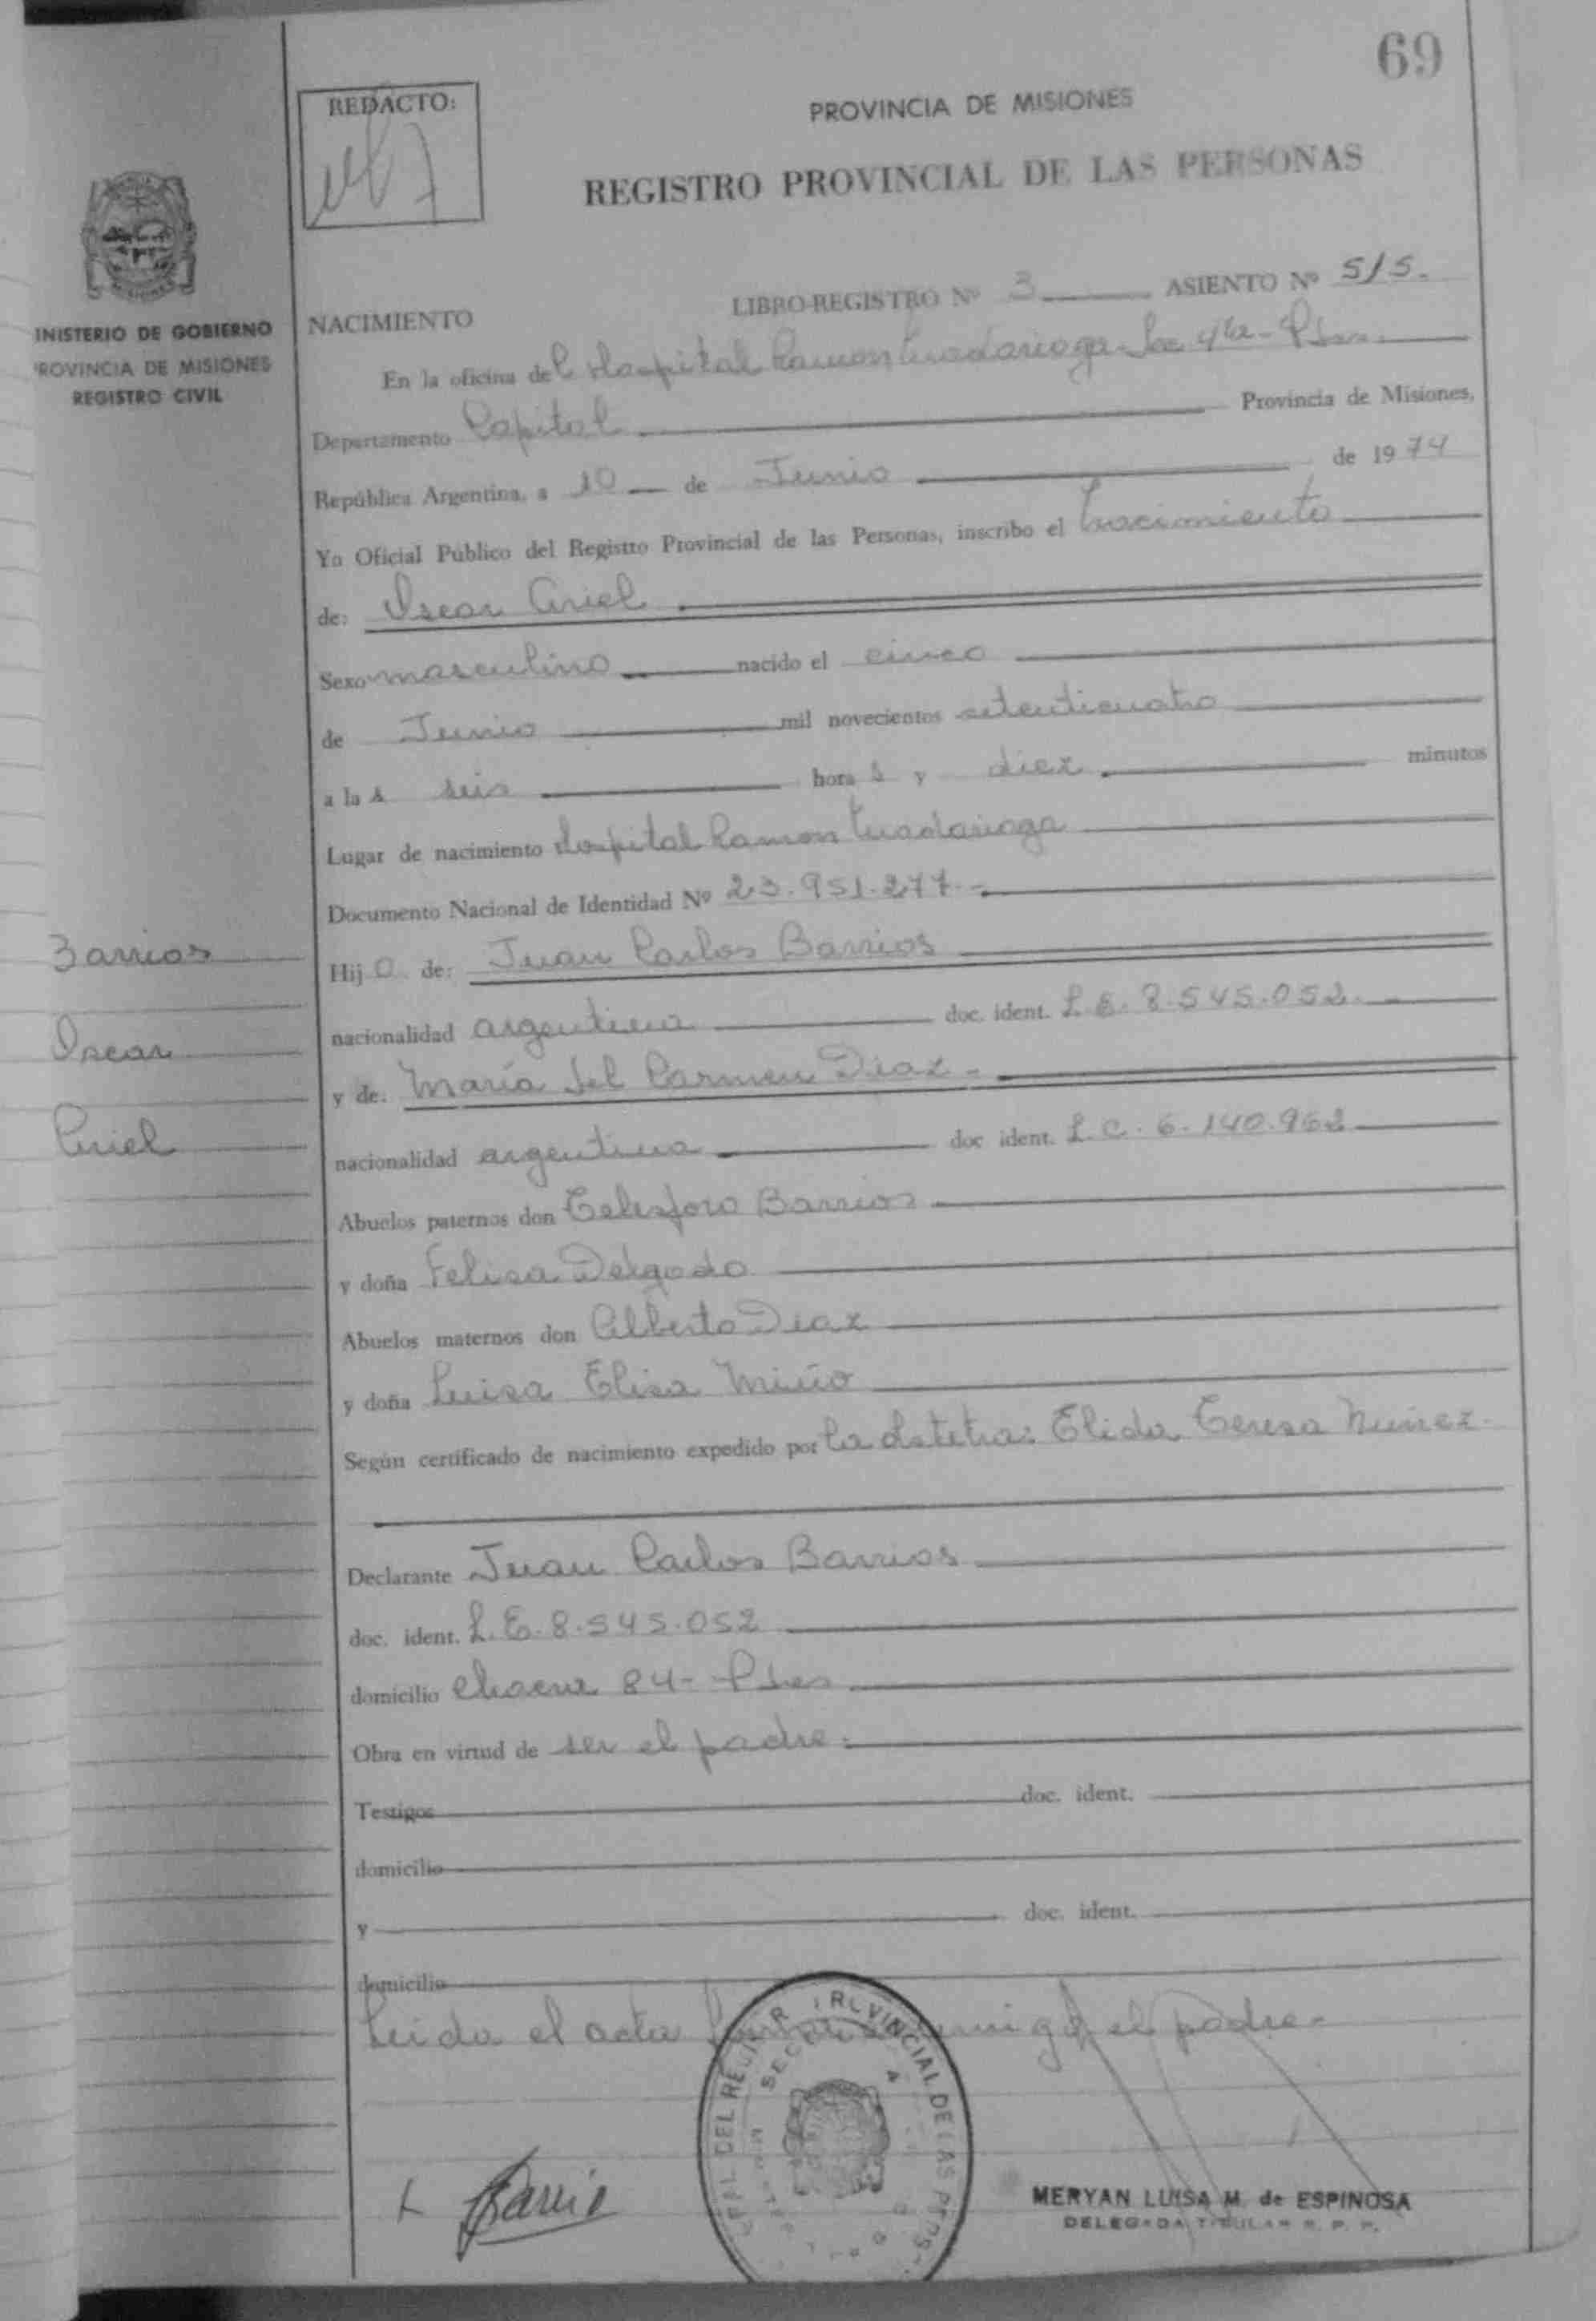 69
REDACTO:
PROVINCIA DE MISIONES
REGISTRO PROVINCIAL DE LAS PERSONAS
INISTERIO DE GOBIERNO
ROVINCIA DE MISIONES
REGISTRO CIVIL
NACIMIENTO LIBRO-REGISTRO Nº 3 ASIENTO Nº 515.
En la oficina del Hospital Ramon Madariaga - Sec 4ta - Pdas.
Departamento Capital Provincia de Misiones,
República Argentina, a 10 de Junio de 1974
Yo Oficial Público del Registro Provincial de las Personas, inscribo el nacimiento
de: Oscar Ariel
Sexo masculino nacido el cinco
de Junio mil novecientos setenticuatro
a las seis horas y diez minutos
Lugar de nacimiento Hospital Ramon Madariaga
Documento Nacional de Identidad Nº 23.951.277.-
Barrios
Hijo de: Juan Carlos Barrios
nacionalidad argentina doc. ident. L.E. 8.545.052.-
Oscar
y de: María del Carmen Diaz -
Ariel
nacionalidad argentina doc ident. L.C. 6.140.962
Abuelos paternos don Telesforo Barrios
y doña Felisa Delgado
Abuelos maternos don Alberto Diaz
y doña Luisa Elisa Miño
Según certificado de nacimiento expedido por la obstetra: Elida Teresa Nuñez.
Declarante Juan Carlos Barrios
doc. ident. L.E. 8.545.052
domicilio Chacra 84 - Pdas
Obra en virtud de ser el padre.
Testigos doc. ident.
domicilio
y doc. ident.
domicilio
Leida el acta firma conmigo el padre.-
PROVINCIAL DE LAS PERS
Barrio
MERYAN LUISA M. de ESPINOSA
DELEGADA TITULAR R. P. P.